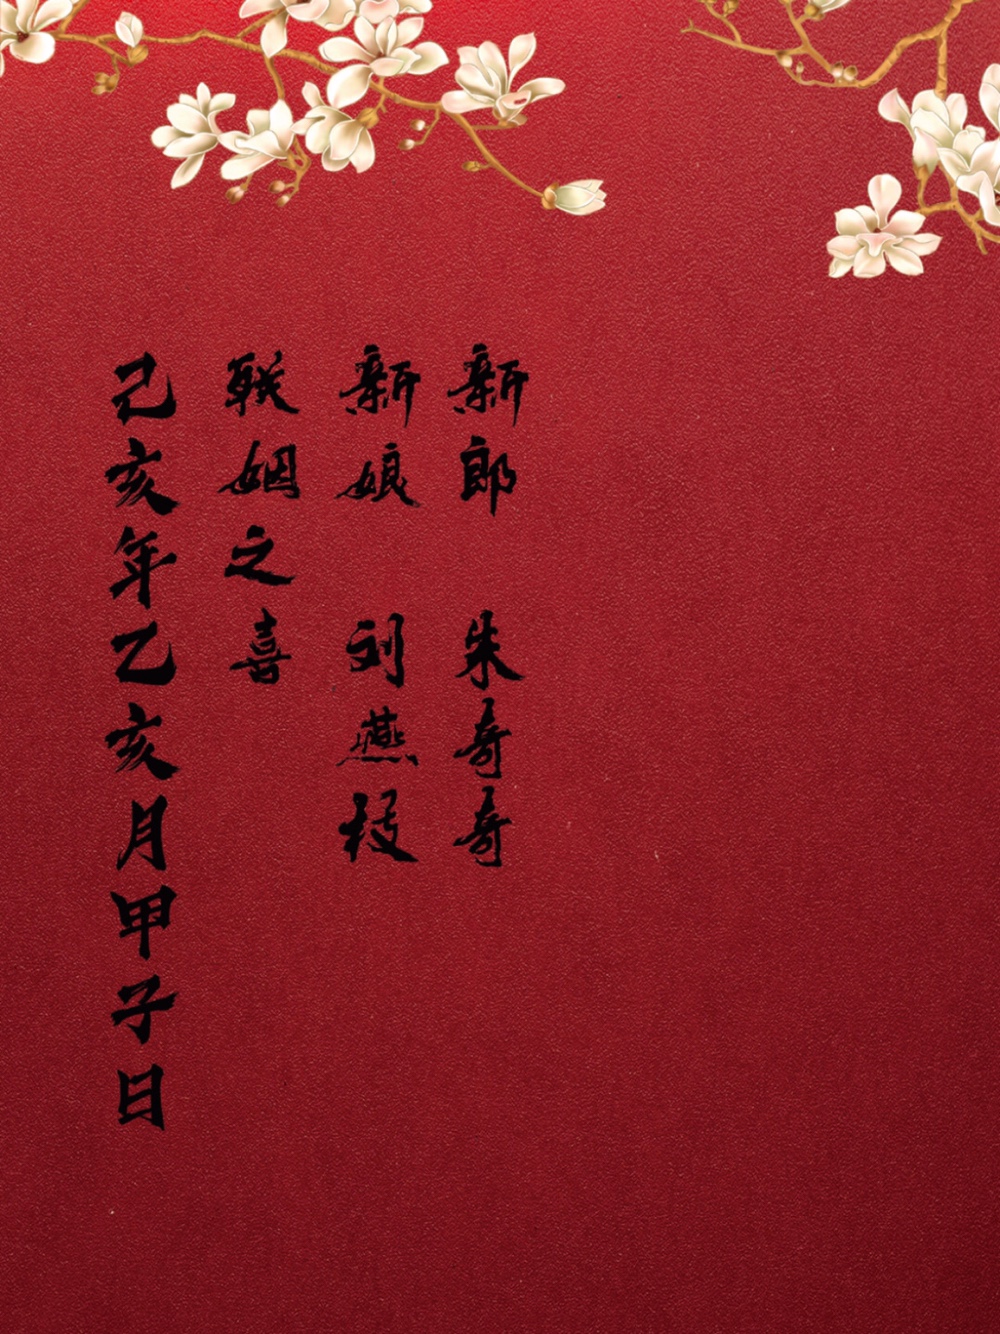 新郎 朱奇奇
新娘 刘燕枝
联姻之喜
己亥年乙亥月甲子日